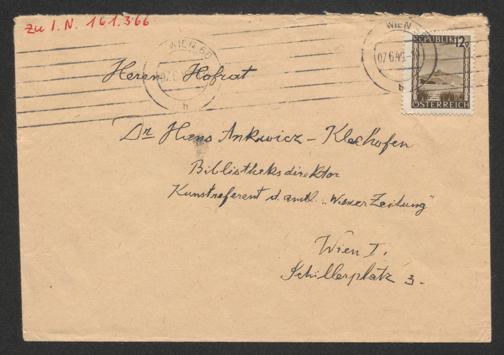 zu I.N. 161.366
WIEN 66
b
WIEN
07.6.46
b
REPUBLIK 12g
ÖSTERREICH
Herrn Hofrat
Dr. Hans Ankwicz-Kleehofen
Bibliotheksdirektor
Kunstreferent d. amtl. "Wiener Zeitung"
Wien I.
Schillerplatz 3.